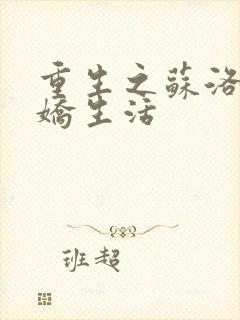 重生之蘇洛
嬌生活
班超